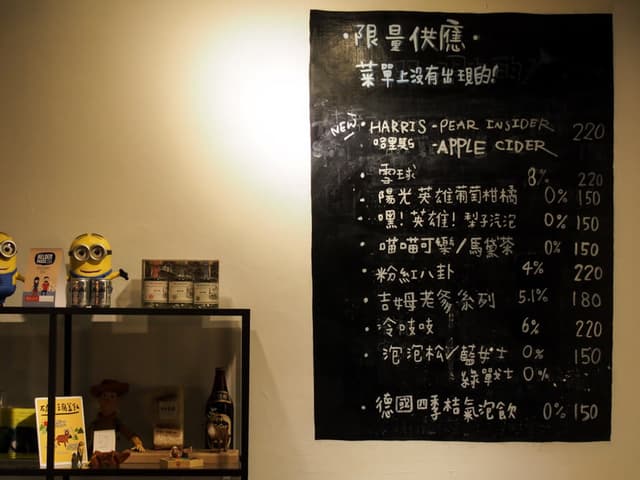 ·限量供應·
菜單上沒有出現的!
NEW · HARRIS - PEAR INSIDER 220
哈里斯 - APPLE CIDER
· 雪球 8% 220
· 陽光英雄葡萄柑橘 0% 150
· 嘿!英雄!梨子汽泡 0% 150
· 喵喵可樂/馬黛茶 0% 150
· 粉紅八卦 4% 220
· 吉姆老爹系列 5.1% 180
· 冷吱吱 6% 220
· 泡泡松/藍女士 0% 150
綠戰士 0%
· 德國四季桔氣泡飲 0% 150